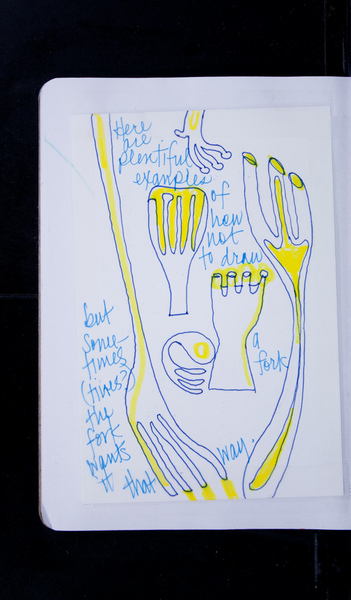 Here
are
plentiful
examples
of
how
not
to draw
a
fork
but
some-
times
(tines?)
the
fork
wants
it that
way.